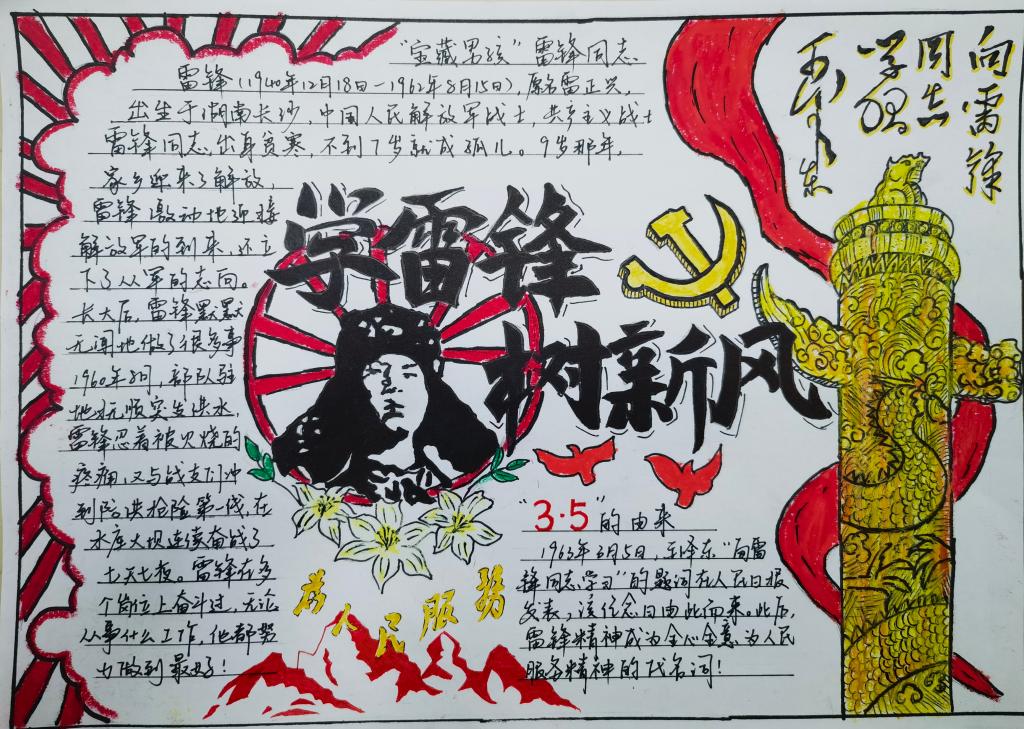 "宝藏男孩"雷锋同志
雷锋(1940年12月18日-1962年8月15日),原名雷正兴,
出生于湖南长沙,中国人民解放军战士,共产主义战士
雷锋同志出身贫寒,不到7岁就成孤儿。9岁那年,
家乡迎来了解放,
雷锋激动地迎接
解放军的到来,还立
下了从军的志向。
长大后,雷锋默默
无闻地做了很多事
1960年8月,部队驻
地抚顺突发洪水,
雷锋忍着被火烧的
疼痛,又与战友们冲
到防洪抢险第一线,在
水库大坝连续奋战了
七天七夜。雷锋在多
个岗位上奋斗过,无论
从事什么工作,他都努
力做到最好!
学雷锋
树新风
向雷锋
同志
学习
毛泽东
为人民服务
"3·5"的由来
1963年3月5日,毛泽东"向雷
锋同志学习"的题词在人民日报
发表,该纪念日由此而来。此后,
雷锋精神成为全心全意为人民
服务精神的代名词!